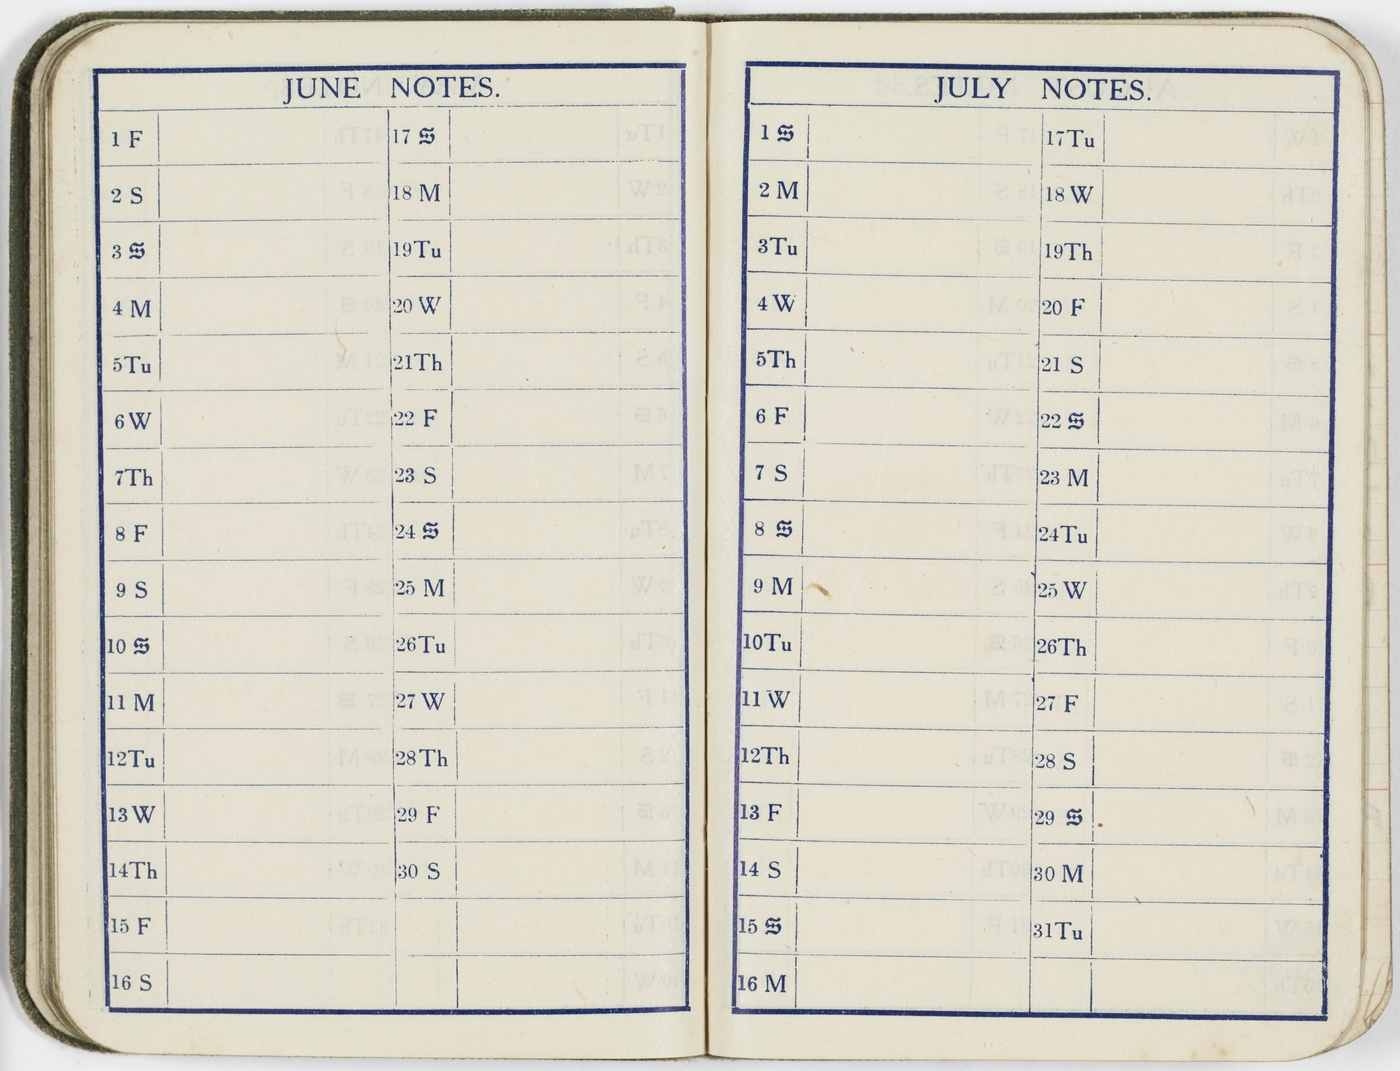 JUNE NOTES.
1 F
2 S
3 S
4 M
5 Tu
6 W
7 Th
8 F
9 S
10 S
11 M
12 Tu
13 W
14 Th
15 F
16 S
17 S
18 M
19 Tu
20 W
21 Th
22 F
23 S
24 S
25 M
26 Tu
27 W
28 Th
29 F
30 S
JULY NOTES.
1 S
2 M
3 Tu
4 W
5 Th
6 F
7 S
8 S
9 M
10 Tu
11 W
12 Th
13 F
14 S
15 S
16 M
17 Tu
18 W
19 Th
20 F
21 S
22 S
23 M
24 Tu
25 W
26 Th
27 F
28 S
29 S
30 M
31 Tu